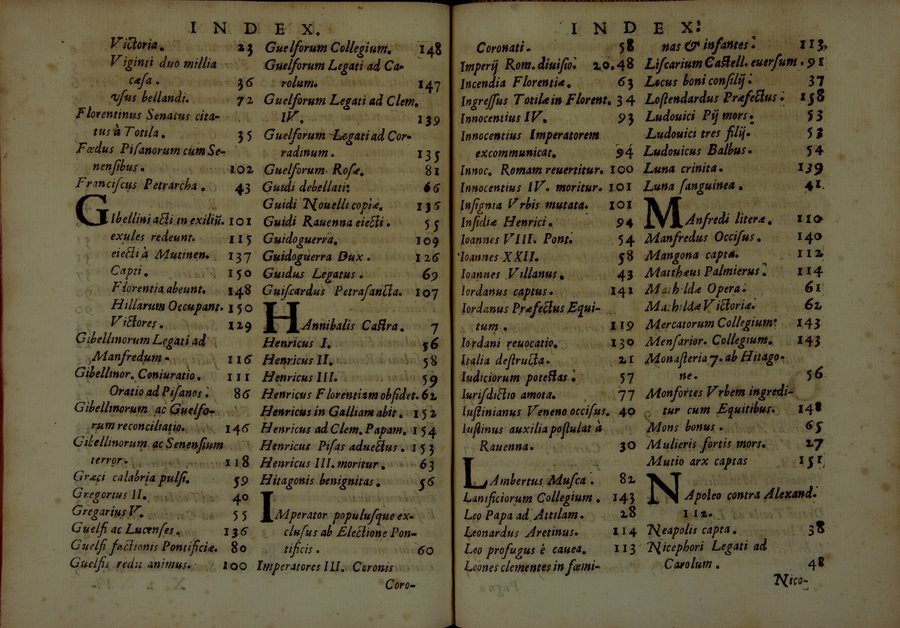 INDEX.
Victoria. 23
Viginti duo millia
cæsa. 36
usus bellandi. 72
Florentinus Senatus cita-
tus à Totila. 35
Fœdus Pisanorum cum Se-
nensibus. 102
Franciscus Petrarcha. 43
Gibellini acti in exiliũ. 101
exules redeunt. 115
eiecti à Mutinen. 137
Capti. 150
Florentia abeunt. 148
Hillarum Occupant. 150
Victores. 129
Gibellinorum Legati ad
Manfredum. 116
Gibellinor. Coniuratio. 111
Oratio ad Pisanos. 86
Gibellinorum ac Guelfo-
rum reconciliatio. 146
Gibellinorum ac Senensium
terror. 118
Græci calabria pulsi. 59
Gregorius II. 40
Gregarius V. 55
Guelfi ac Lucenses. 136
Guelfi factionis Pontificiæ. 80
Guelfis redit animus. 100
Guelforum Collegium. 148
Guelforum Legati ad Ca-
rolum. 147
Guelforum Legati ad Clem.
IV. 139
Guelforum Legati ad Cor-
radinum. 135
Guelforum Rosæ. 81
Guidi debellati: 66
Guidi Nouelli copiæ. 136
Guidi Rauenna eiecti. 55
Guidoguerra. 109
Guidoguerra Dux. 126
Guidus Legatus. 69
Guiscardus Petrasancta. 107
HAnnibalis Castra. 7
Henricus I. 56
Henricus II. 58
Henricus III. 59
Henricus Florentiam obsidet. 62
Henricus in Galliam abit. 152
Henricus ad Clem. Papam. 154
Henricus Pisas aduectus. 153
Henricus III. moritur. 63
Hitagonis benignitas. 56
IMperator populusque ex-
clusus ab Electione Pon-
tificis. 60
Imperatores III. Coronis
Coro-
INDEX.
Coronati. 58
Imperij Rom. diuisio. 20.48
Incendia Florentiæ. 63
Ingressus Totilæ in Florent. 34
Innocentius IV. 93
Innocentius Imperatorem
excommunicat. 94
Innoc. Romam reuertitur. 100
Innocentius IV. moritur. 101
Insignia Vrbis mutata. 101
Insidiæ Henrici. 94
Ioannes VIII. Pont. 54
Ioannes XXII. 58
Ioannes Villanus. 43
Iordanus captus. 141
Iordanus Præfectus Equi-
tum. 119
Iordani reuocatio. 130
Italia destructa. 21
Iudiciorum potestas. 57
Iurisdictio amota. 77
Iustinianus Veneno occisus. 40
Iustinus auxilia postulat à
Rauenna. 30
LAmbertus Musca. 82
Lanificiorum Collegium. 143
Leo Papa ad Attilam. 28
Leonardus Aretinus. 114
Leo profugus è cauea. 113
Leones clementes in fœmi-
nas & infantes. 113,
Liscarium Castell. euersum. 91
Locus boni consilij. 37
Lostendardus Præfectus. 158
Ludouici Pij mors. 53
Ludouici tres filij. 53
Ludouicus Balbus. 54
Luna crinita. 139
Luna sanguinea. 41
MAnfredi literæ. 110
Manfredus Occisus. 140
Mangona capta. 112
Mattheus Palmierus. 114
Mathildæ Opera. 61
Mathildæ Victoriæ. 62
Mercatorum Collegium. 143
Mensarior. Collegium. 143
Monasteria 7. ab Hitago-
ne. 56
Monfortes Vrbem ingredi-
tur cum Equitibus. 148
Mons bonus. 65
Mulieris fortis mors. 27
Mutio arx captas 151
NApoleo contra Alexand.
112.
Neapolis capta. 38
Nicephori Legati ad
Carolum. 48
Nico-